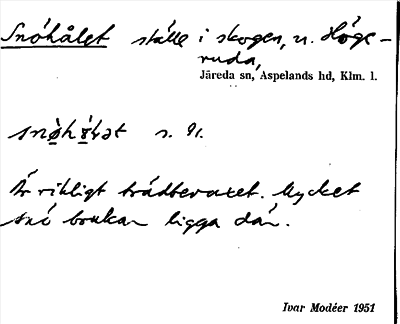 Snöhålet ställe i skogen, n. Höge-
ruda,
Järeda sn, Aspelands hd, Klm. l.
n. 91.
Är rikligt trädbevuxet. Mycket
snö brukar ligga där.
Ivar Modéer 1951